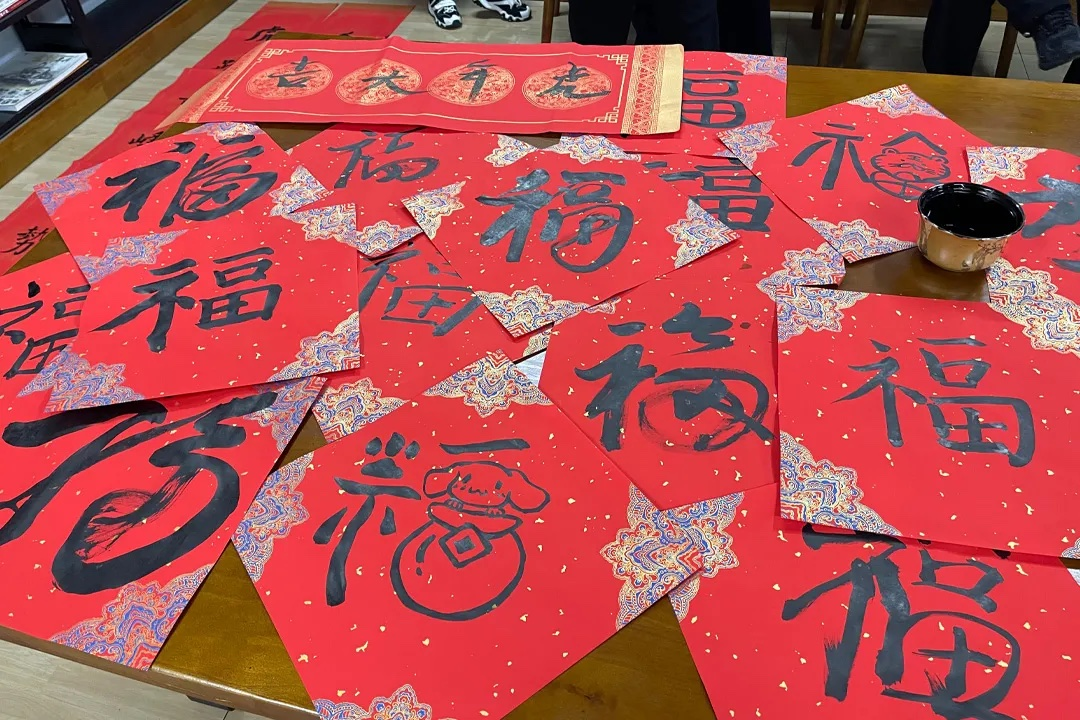 虎年大吉
福
福
福
福
福
福
福
福
福
福
福
福
福